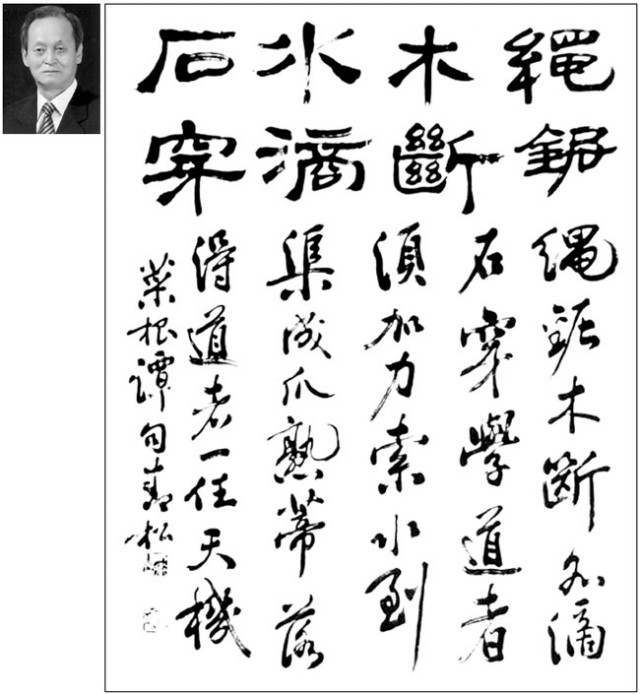 繩鋸
木斷
水滴
石穿
繩鋸木斷水滴
石穿學道者
須加力索水到
渠成瓜熟蒂落
得道者一任天機
菜根譚句松